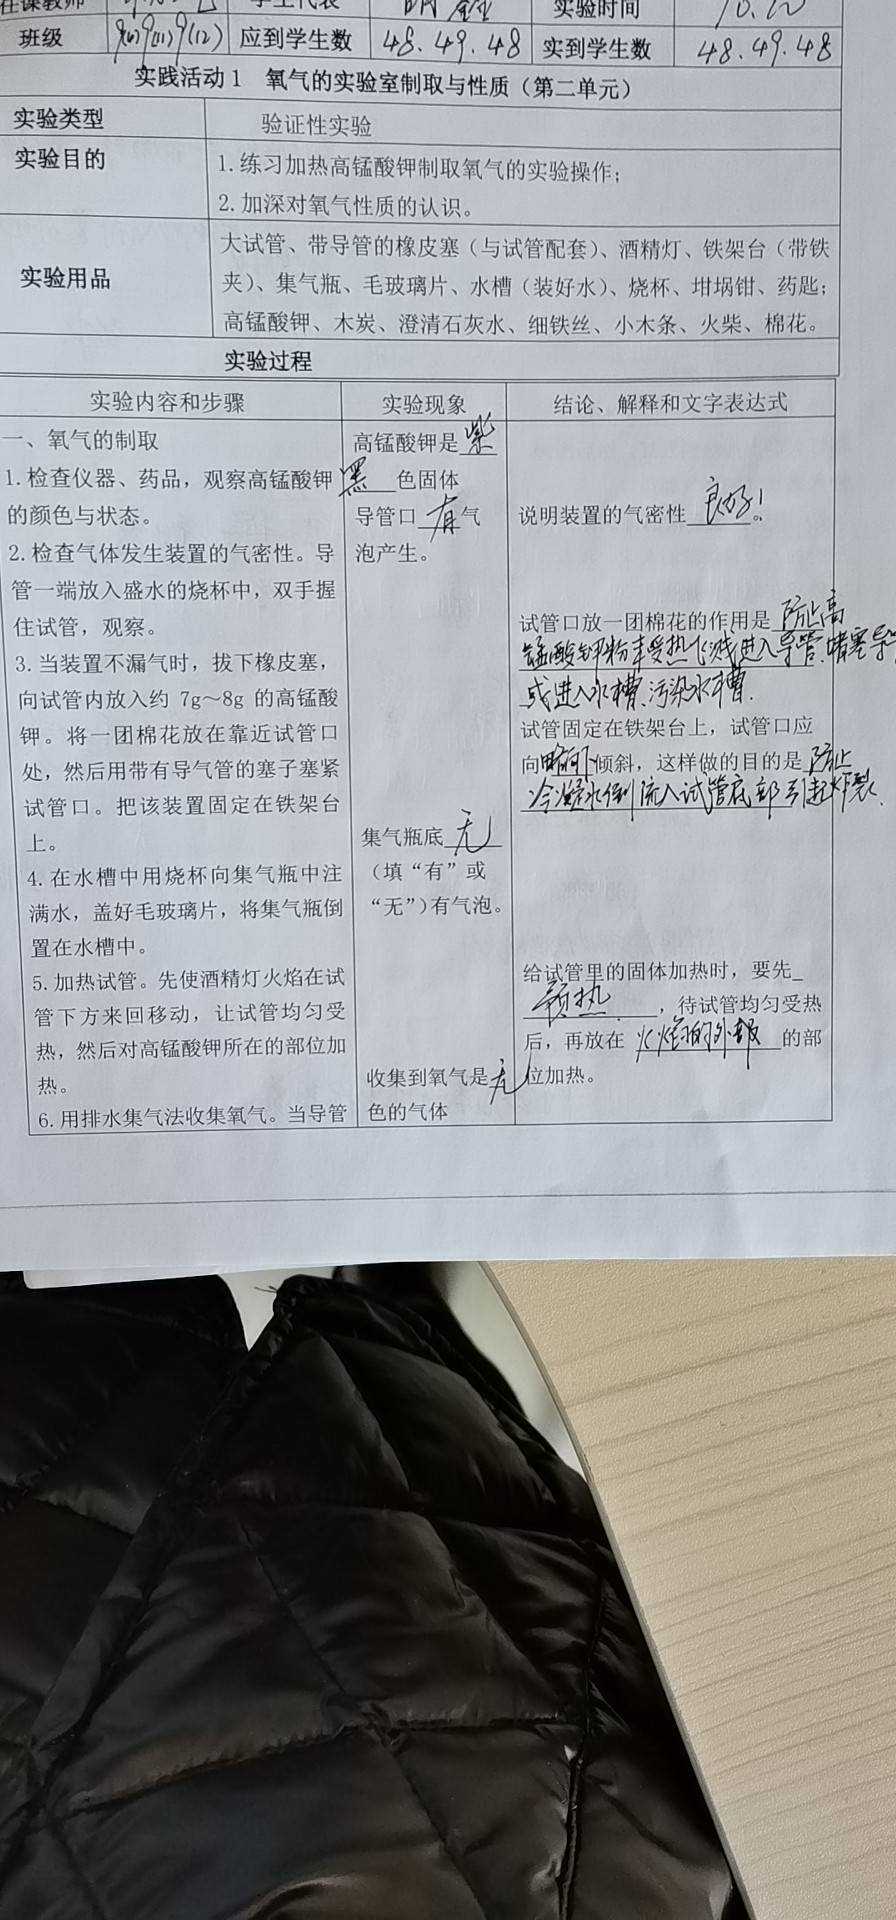 任课教师 学生代表 实验时间 10.20
班级 9(11)9(12) 应到学生数 48.49.48 实到学生数 48.49.48
实践活动1 氧气的实验室制取与性质（第二单元）
实验类型 验证性实验
实验目的 1.练习加热高锰酸钾制取氧气的实验操作；
2.加深对氧气性质的认识。
实验用品
大试管、带导管的橡皮塞（与试管配套）、酒精灯、铁架台（带铁
夹）、集气瓶、毛玻璃片、水槽（装好水）、烧杯、坩埚钳、药匙；
高锰酸钾、木炭、澄清石灰水、细铁丝、小木条、火柴、棉花。
实验过程
实验内容和步骤 实验现象 结论、解释和文字表达式
一、氧气的制取
1.检查仪器、药品，观察高锰酸钾
的颜色与状态。
2.检查气体发生装置的气密性。导
管一端放入盛水的烧杯中，双手握
住试管，观察。
3.当装置不漏气时，拔下橡皮塞，
向试管内放入约 7g～8g 的高锰酸
钾。将一团棉花放在靠近试管口
处，然后用带有导气管的塞子塞紧
试管口。把该装置固定在铁架台
上。
4.在水槽中用烧杯向集气瓶中注
满水，盖好毛玻璃片，将集气瓶倒
置在水槽中。
5.加热试管。先使酒精灯火焰在试
管下方来回移动，让试管均匀受
热，然后对高锰酸钾所在的部位加
热。
6.用排水集气法收集氧气。当导管
高锰酸钾是紫
黑色固体
导管口有气
泡产生。
集气瓶底无
（填“有”或
“无”)有气泡。
收集到氧气是无
色的气体
说明装置的气密性良好。
试管口放一团棉花的作用是防止高
锰酸钾粉末受热飞溅进入导管.堵塞导
或进入水槽.污染水槽.
试管固定在铁架台上，试管口应
向略向下倾斜，这样做的目的是防止
冷凝水倒流入试管底部引起炸裂.
给试管里的固体加热时，要先
预热，待试管均匀受热
后，再放在火焰的外部的部
位加热。